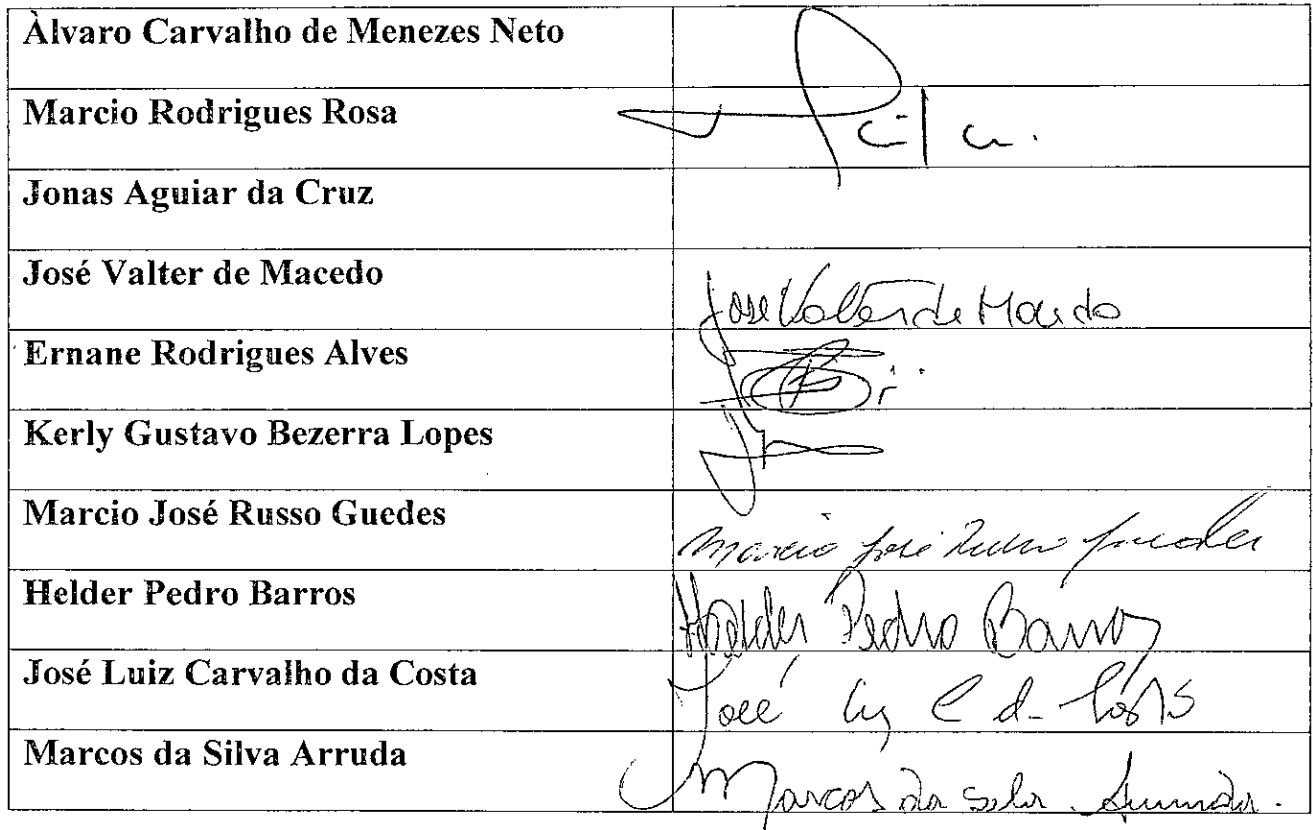 Àlvaro Carvalho de Menezes Neto
Marcio Rodrigues Rosa
Jonas Aguiar da Cruz
José Valter de Macedo
José Valter de Macedo
Ernane Rodrigues Alves
Kerly Gustavo Bezerra Lopes
Marcio José Russo Guedes
Marcio José Russo Guedes
Helder Pedro Barros
Helder Pedro Barros
José Luiz Carvalho da Costa
José Luiz C d. Costa
Marcos da Silva Arruda
Marcos da Silva Arruda.